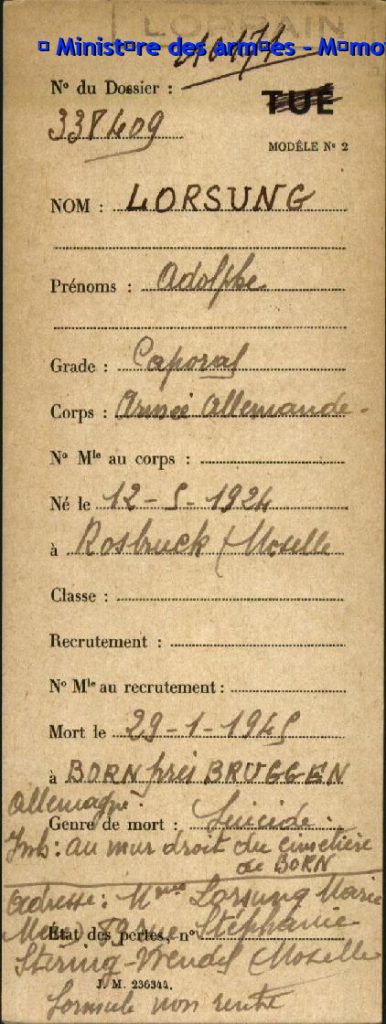 LORRAIN
© Ministère des armées - Mémoi
N° du Dossier :
TUÉ
338409
MODÈLE N° 2
NOM : LORSUNG
Prénoms : Adolphe
Grade : Caporal
Corps : Armée Allemande.
N° Mle au corps :
Né le 12-5-1924
à Rosbruck (Moselle
Classe :
Recrutement :
N° Mle au recrutement :
Mort le 29-1-1945
à BORN près BRUGGEN
Allemagne.
Genre de mort : Suicide.
Inh : au mur droit du cimetière
de BORN
Adresse : Mme Lorsung Marie
rue Stéphanie
État des pertes, n°
Stering-Wendel (Moselle
J. M. 236344.
Formule non rentré